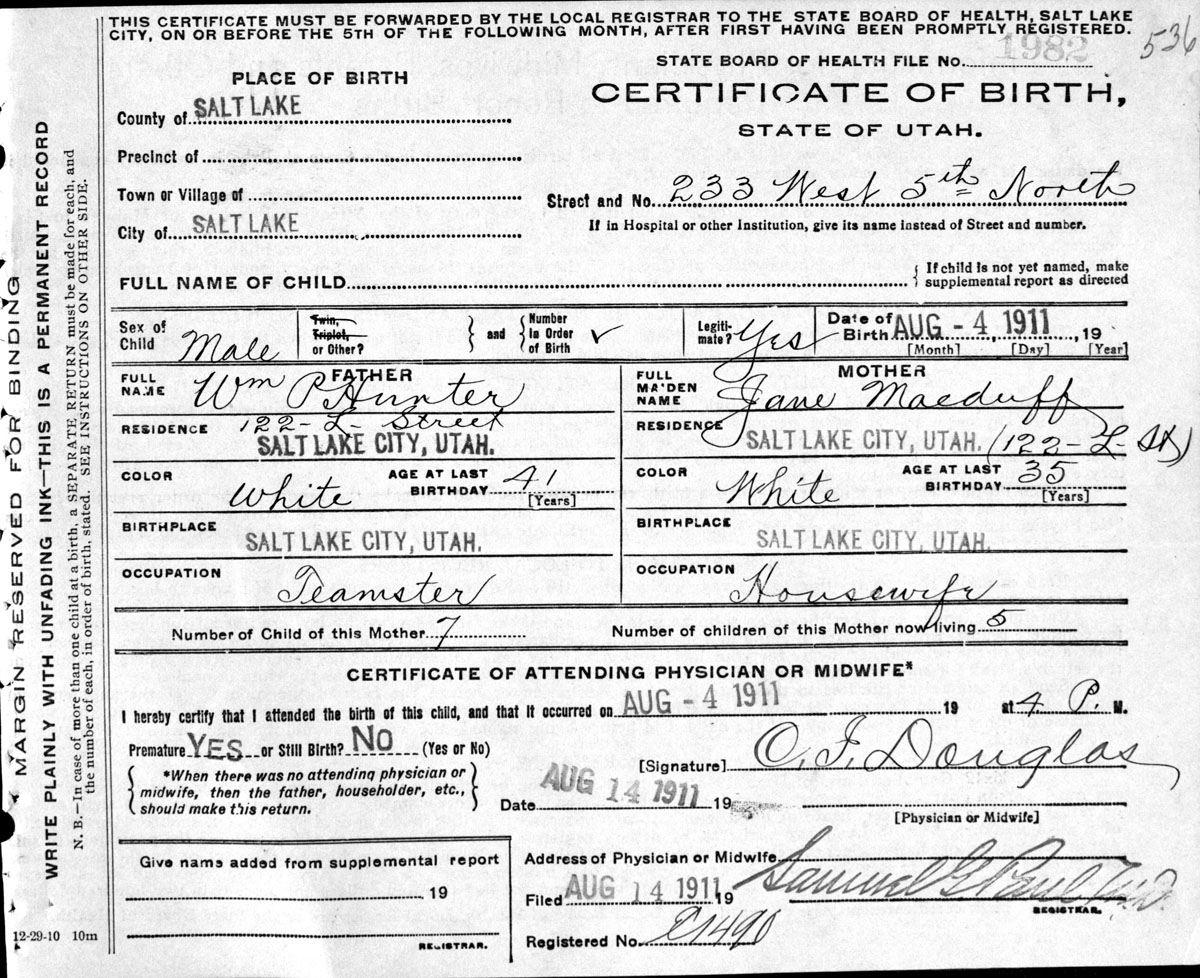 THIS CERTIFICATE MUST BE FORWARDED BY THE LOCAL REGISTRAR TO THE STATE BOARD OF HEALTH, SALT LAKE
CITY, ON OR BEFORE THE 5TH OF THE FOLLOWING MONTH, AFTER FIRST HAVING BEEN PROMPTLY REGISTERED.
536
STATE BOARD OF HEALTH FILE No. 1982
PLACE OF BIRTH
CERTIFICATE OF BIRTH,
STATE OF UTAH.
County of SALT LAKE
Precinct of
Town or Village of
City of SALT LAKE
Street and No. 233 West 5th North
If in Hospital or other Institution, give its name instead of Street and number.
FULL NAME OF CHILD
If child is not yet named, make
supplemental report as directed
Sex of Child Male
Twin, Triplet, or Other?
and
Number in Order of Birth ✓
Legiti-mate? Yes
Date of Birth AUG - 4 1911, 19
[Month] [Day] [Year]
FATHER
FULL NAME Wm P Hunter
RESIDENCE 122-L-Street
SALT LAKE CITY, UTAH.
COLOR White
AGE AT LAST BIRTHDAY 41
[Years]
BIRTHPLACE
SALT LAKE CITY, UTAH.
OCCUPATION Teamster
MOTHER
FULL MAIDEN NAME Jane Macduff
RESIDENCE SALT LAKE CITY, UTAH. (122-L-St)
COLOR White
AGE AT LAST BIRTHDAY 35
[Years]
BIRTHPLACE
SALT LAKE CITY, UTAH.
OCCUPATION Housewife
Number of Child of this Mother 7
Number of children of this Mother now living 5
CERTIFICATE OF ATTENDING PHYSICIAN OR MIDWIFE*
I hereby certify that I attended the birth of this child, and that it occurred on AUG - 4 1911 19 at 4 P. M.
Premature YES or Still Birth? NO (Yes or No)
*When there was no attending physician or
midwife, then the father, householder, etc.,
should make this return.
[Signature] O. J. Douglas
Date AUG 14 1911 19
[Physician or Midwife]
Give name added from supplemental report
19
REGISTRAR.
Address of Physician or Midwife
Filed AUG 14 1911, 19
Samuel G Paul
REGISTRAR.
Registered No. E1490
12-29-10 10m
MARGIN RESERVED FOR BINDING
WRITE PLAINLY WITH UNFADING INK—THIS IS A PERMANENT RECORD
N. B.—In case of more than one child at a birth, a SEPARATE RETURN must be made for each, and
the number of each, in order of birth, stated. SEE INSTRUCTIONS ON OTHER SIDE.